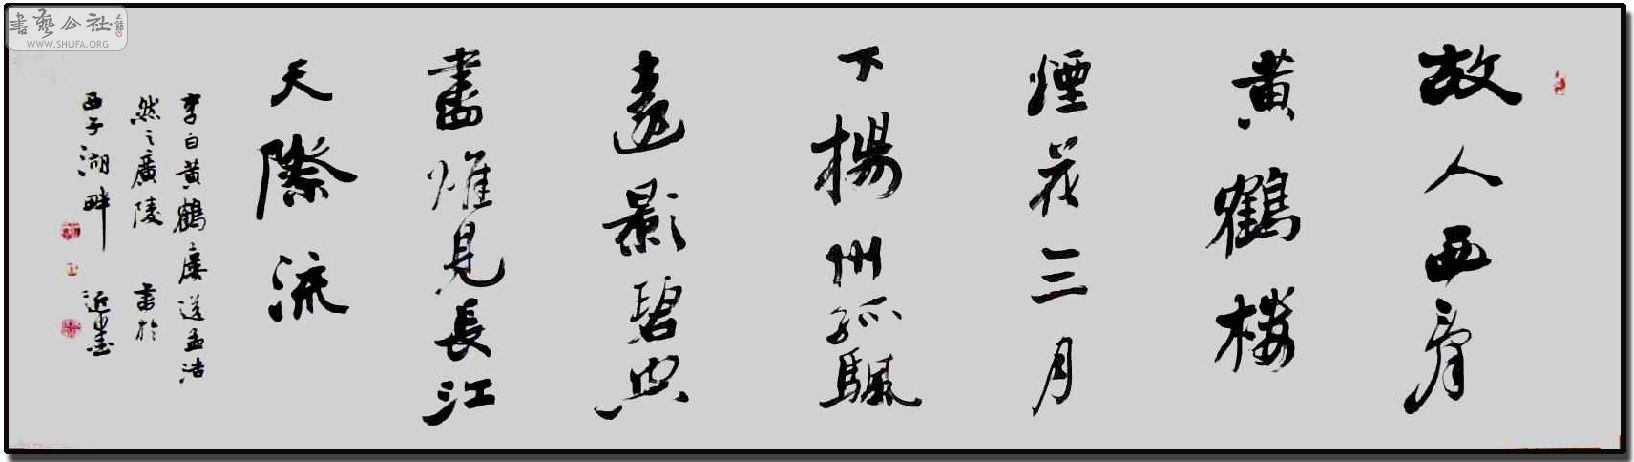 書藝公社
WWW.SHUFA.ORG
故人西辭
黃鶴樓
煙花三月
下揚州孤颿
遠影碧空
盡惟見長江
天際流
李白黃鶴樓送孟浩
然之廣陵 書於
西子湖畔 近墨